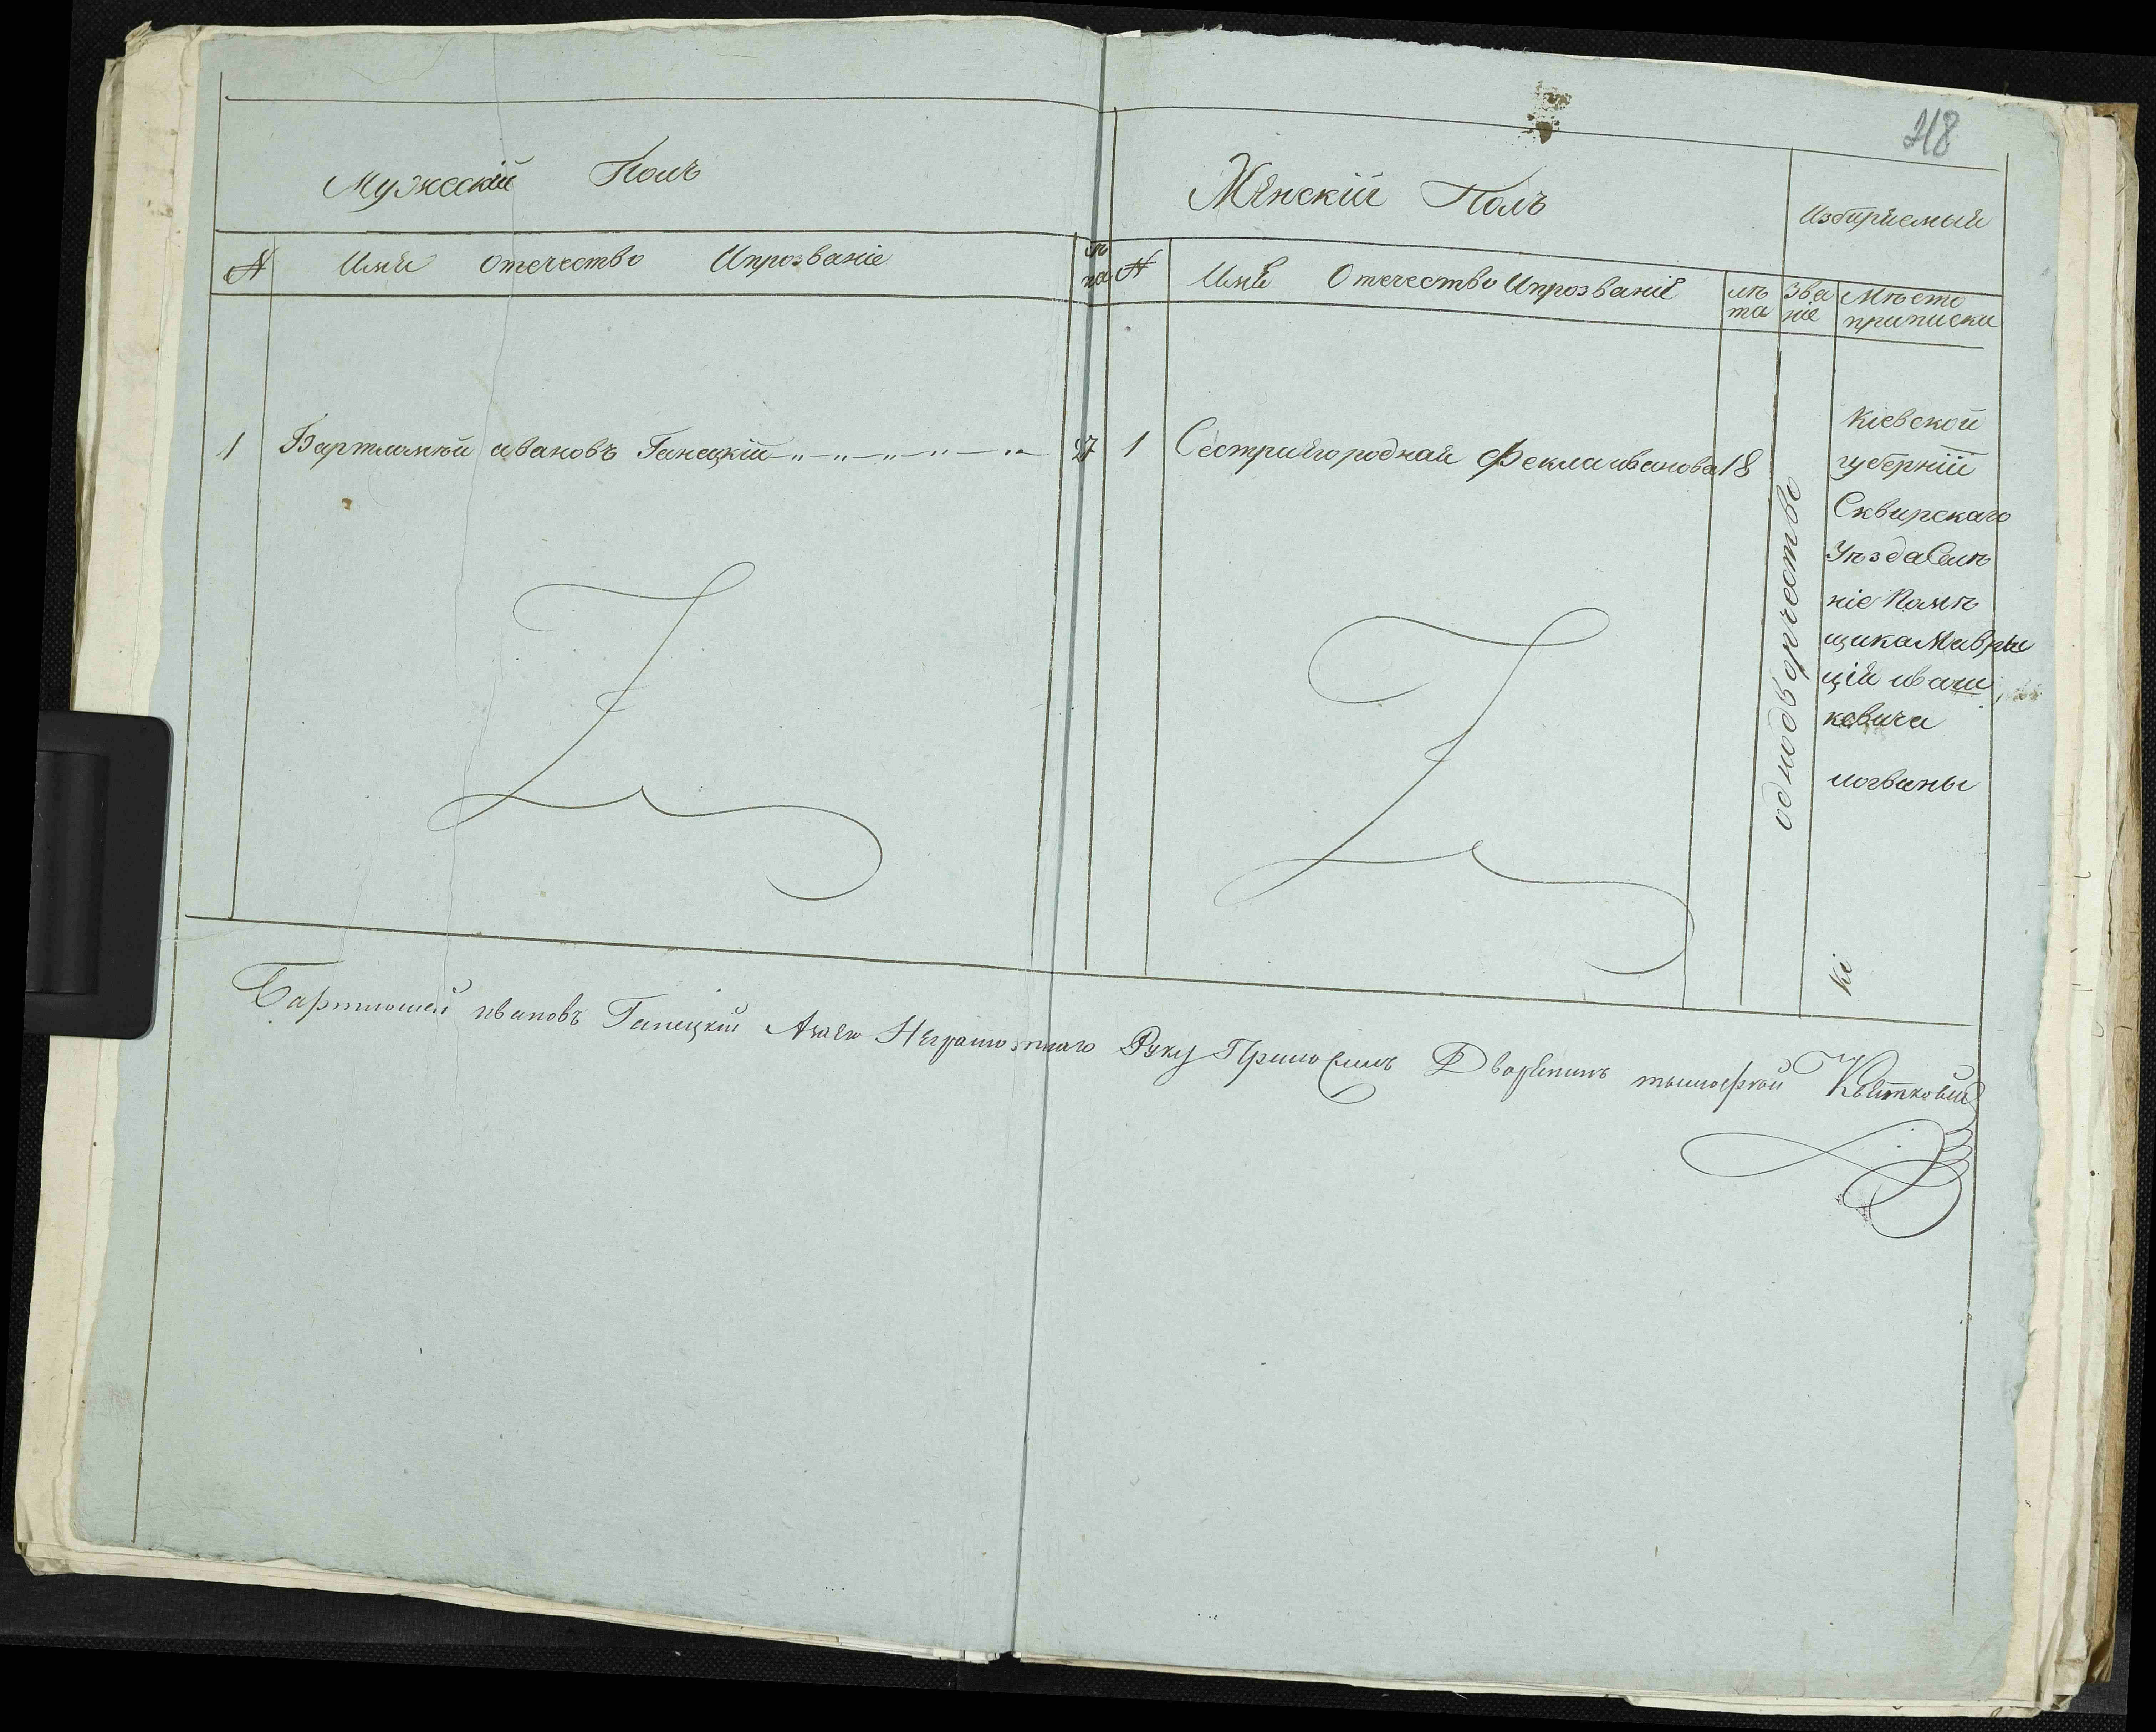 218
Мужескій Полъ
№ Имя Отечество Ипрозваніе лѣ та
1 Бартломѣй ивановъ Ганецкій 27
Женскій Полъ
Избираемый
№ Имя Отечество Ипрозваніе лѣ та Зва ніе Мѣсто приписки
1 Сестра его родная Фекла иванова 18
однодворчество
Кіевской
губерніи
Сквирскаго
Уѣзда Селѣ
ніе Помѣ
щика Маври
ція иваш
кевича
логвины
Кі
Бартломей ивановъ Ганецкій Аза его Неграмотнаго Руку Приложилъ Дворянинъ тымофѣй